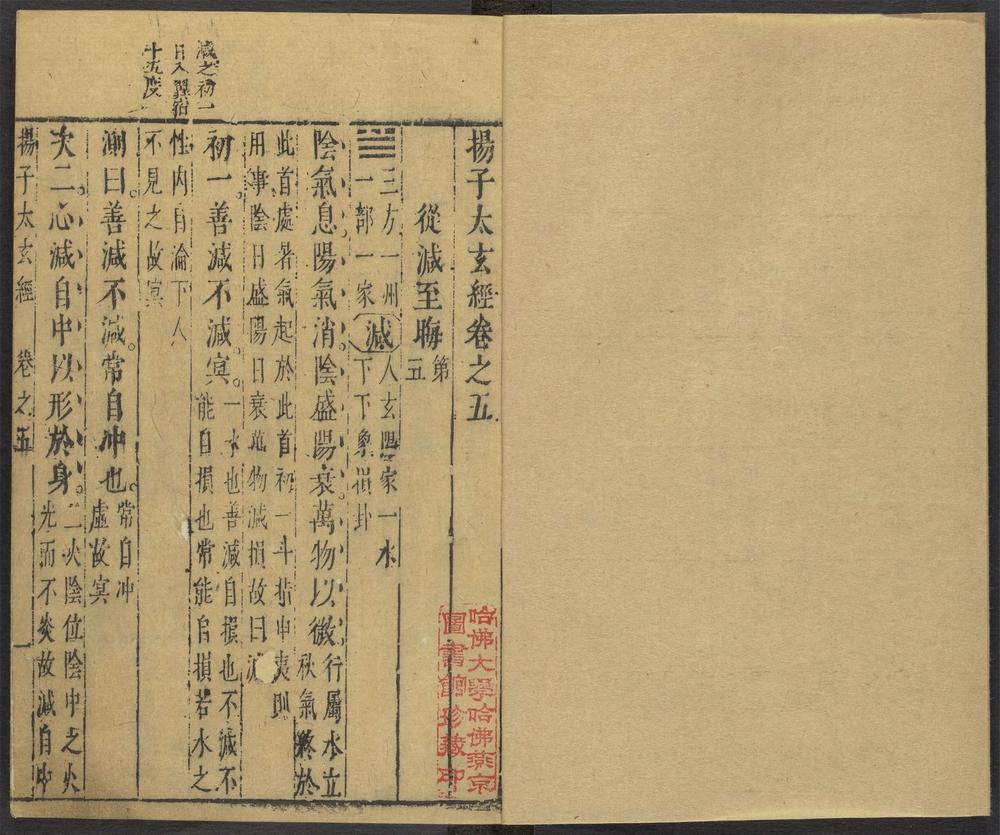 揚子太玄經卷之五
從減至晦第五
三方一州一部一家減人玄陽家一水下下象損卦
陰氣息陽氣消陰盛陽衰萬物以微行屬水立秋氣終於
此首處暑氣起於此首初一斗指申夷則
用事陰日盛陽日衰萬物減損故曰減
初一善減不減冥一水也善減自損也不減不能自損也常能自損若水之
性內自淪下人
不見之故冥
測曰善減不減常自冲也常自冲虛故冥
次二心減自中以形於身二火陰位陰中之火光而不炎故減自中
揚子太玄經 卷之五 一
減之初一
日入翼宿
十五度
哈佛大學哈佛燕京
圖書館珍藏印